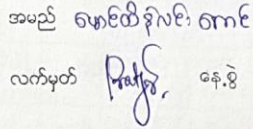 အမည် မောင်ထိန်လင်းအောင်
လက်မှတ် နေ့စွဲ